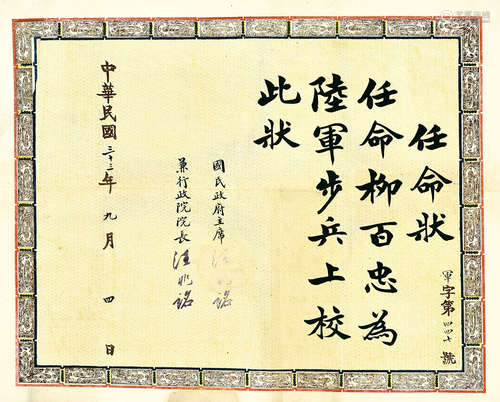 任命狀
任命柳百忠為
陸軍步兵上校
此狀
軍字第四四七號
國民政府主席 汪兆銘
兼行政院院長 汪兆銘
中華民國三十三年九月四日